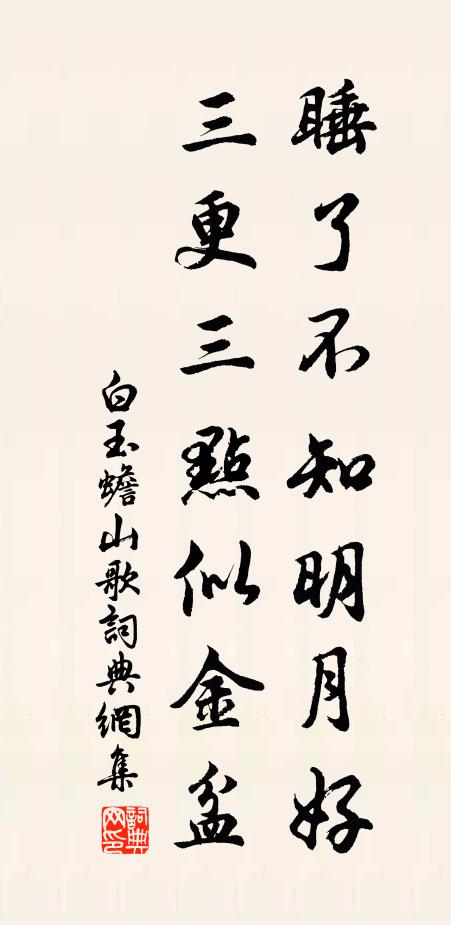 睡了不知明月好
三更三點似金盆
白玉蟾山歌詞典網集
詞典
网印